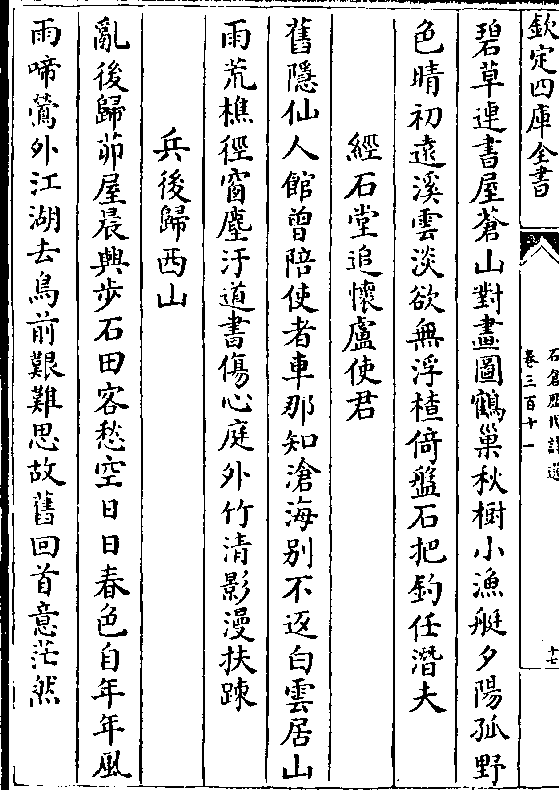 欽定四庫全書
石倉歷代詩選
卷三百十一
十七
碧草連書屋蒼山對畫圖鶴巢秋樹小漁艇夕陽孤野
色晴初遠溪雲淡欲無浮楂倚盤石把釣任潛夫
經石堂追懷盧使君
舊隱仙人館曾陪使者車那知滄海别不返白雲居山
雨荒樵徑窗塵汙道書傷心庭外竹清影漫扶踈
兵後歸西山
亂後歸茆屋晨興步石田客愁空日日春色自年年風
雨啼鶯外江湖去鳥前艱難思故舊回首意茫然